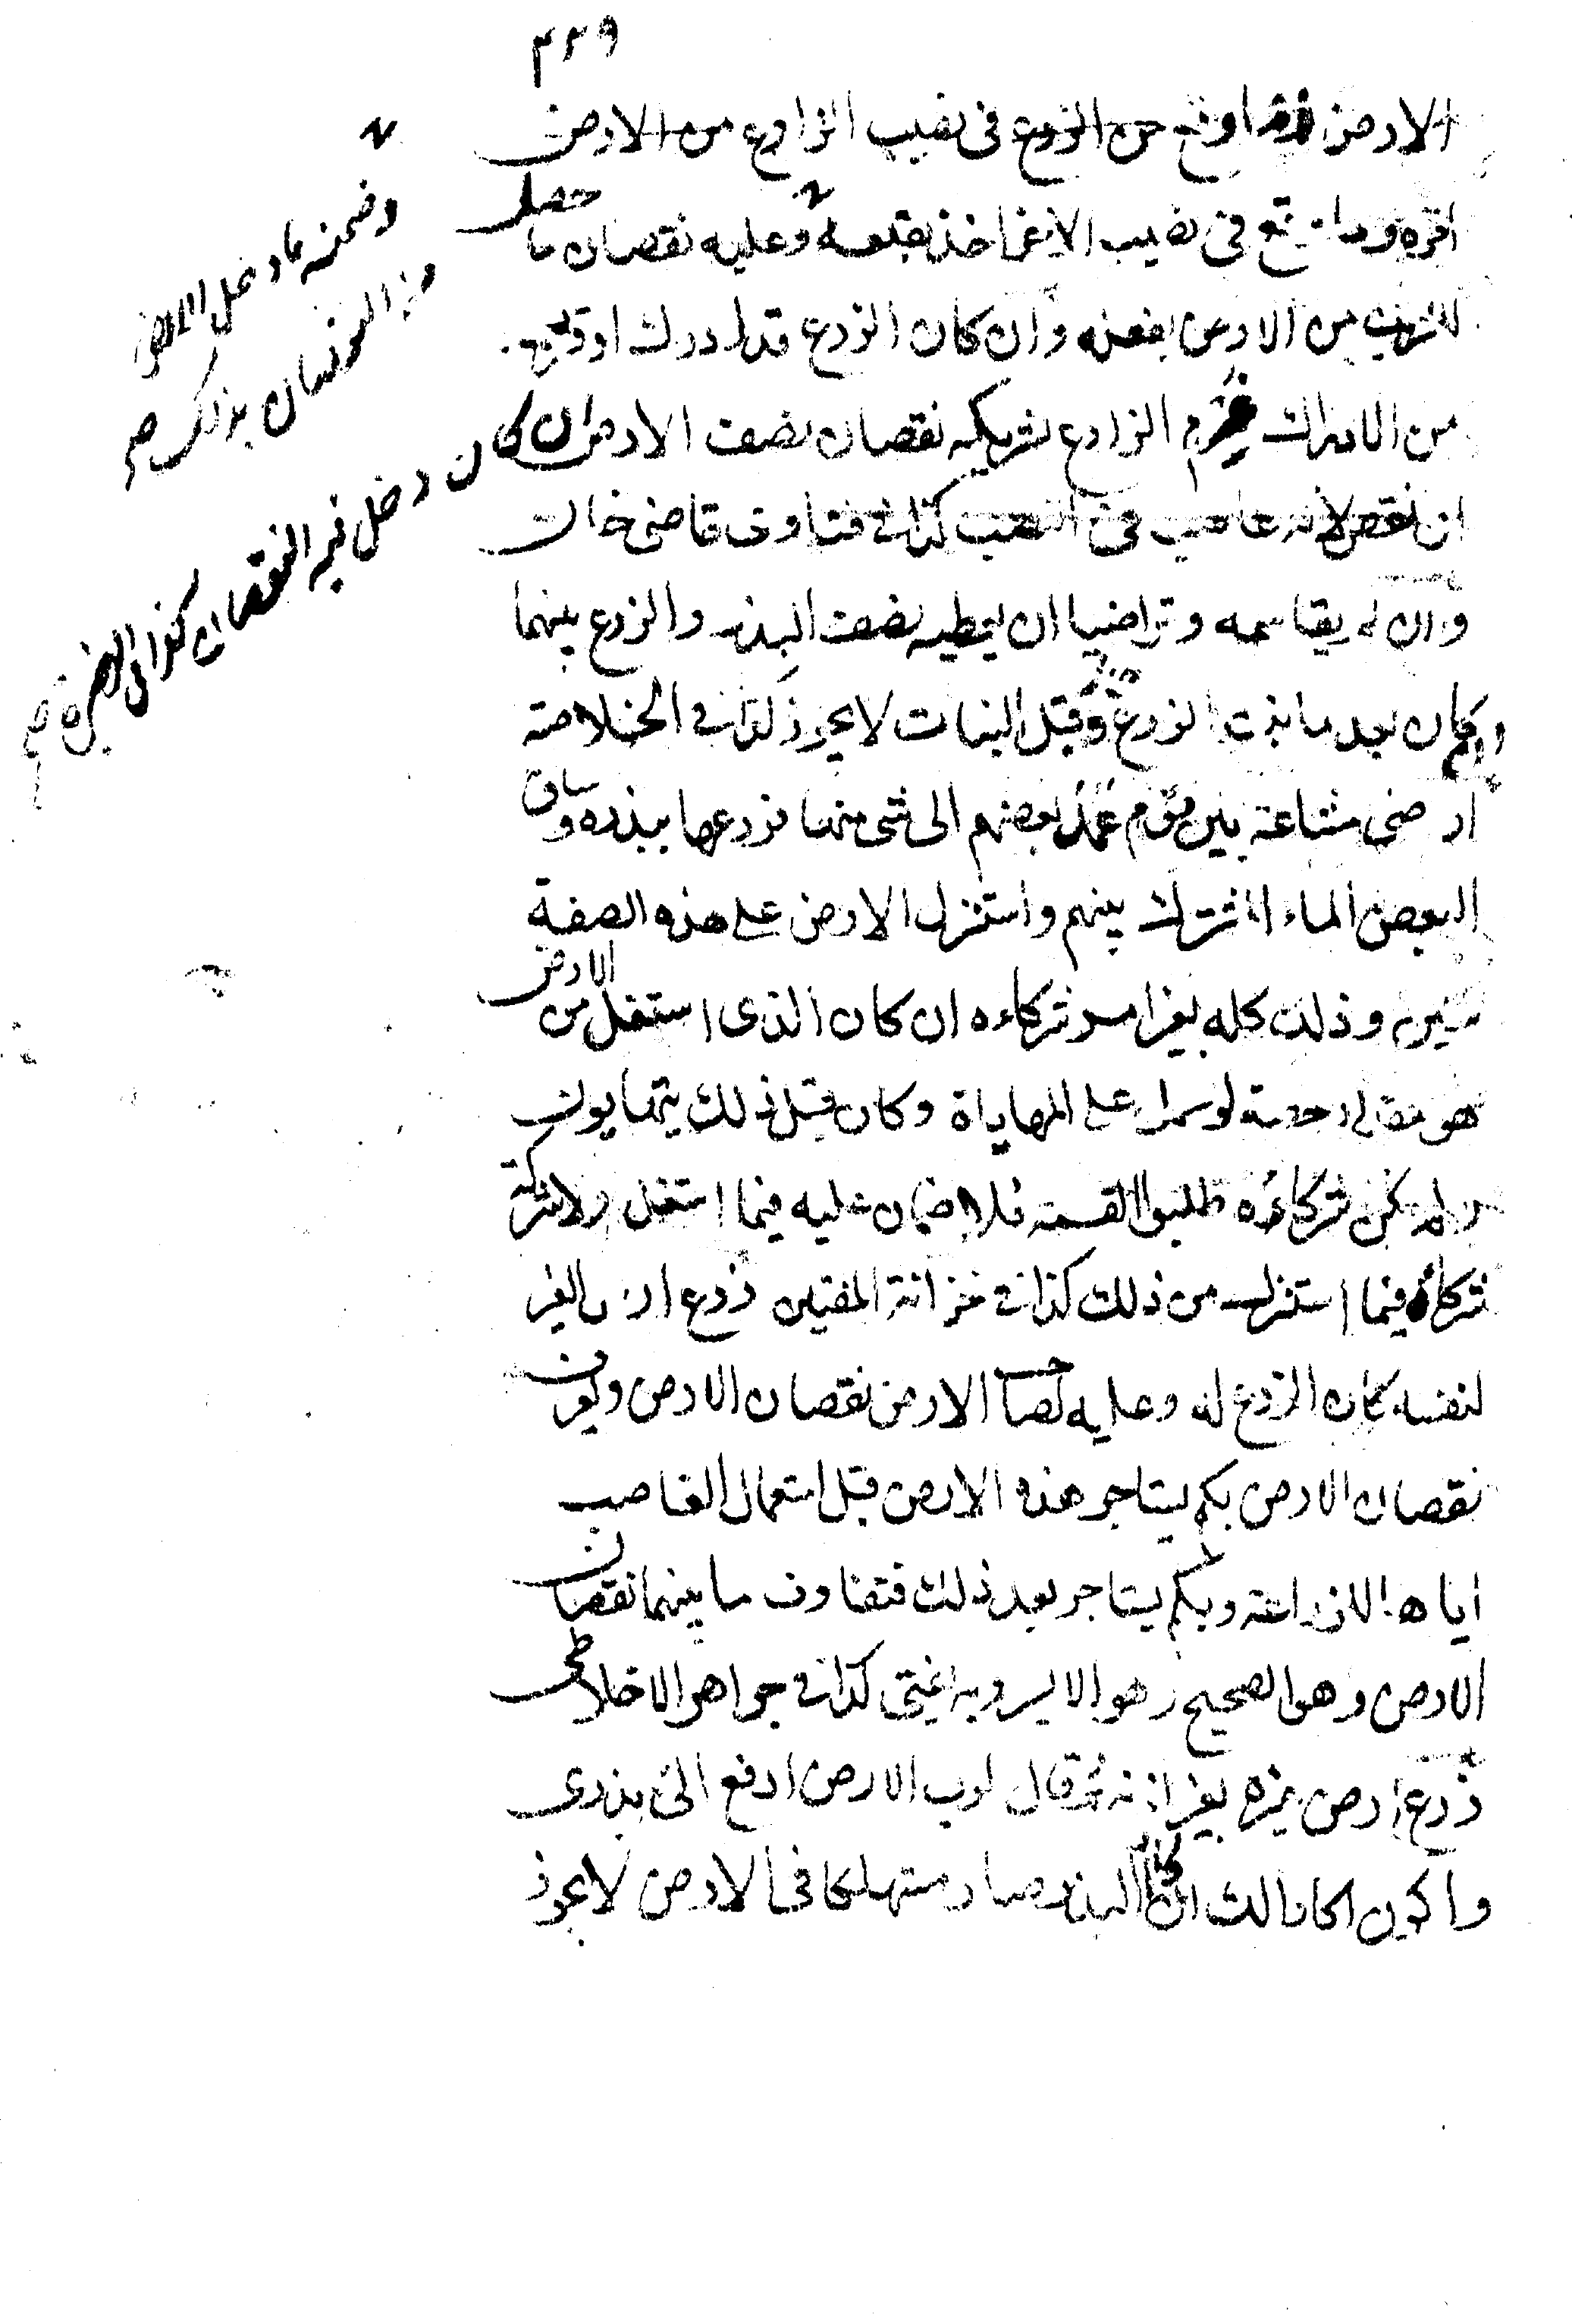 ٤٣٩
الارض فما وقع من الزرع فى نصيب الزارع من الارض
اقره وما وقع فى نصيب الاخر اخذ بقلعه وعليه نقصان ما حصل
للشريك من الارض بفعله وان كان الزرع قد ادرك او قرب
من الادراك غرم الزارع لشريكه نقصان نصف الارض ان كان دخل فيه النقصان كذا فى الذخيرة صح
ان نقص لانه غاصب فى النصيب كذا فى فتاوى قاضى خان
وان لم يقاسمه وتراضيا ان يعطيه نصف البذر والزرع بينهما
ان كان بعد ما نبت الزرع جاز وقبل النبات لا يجوز كذا فى الخلاصة
ارضى مشاعة بين قوم عمد بعضهم الى شى منها فزرعها ببذره وساق
البعض الماء المشترك بينهم واستنزل الارض على هذه الصفة
سنين وذلك كله بغير امر شركاءه ان كان الذى استغل من الارض
هو مقدار حصته لو حمل على المهاياة وكان قبل ذلك يتهايون
ولم يكن شركاءه طلبوا القسمة فلا ضمان عليه فيما استغل ولا شركة
شركاءه فيما استنزل من ذلك كذا فى خزانة المفتين زرع ارض الغير
لنفسه كان الزرع له وعليه لصاحب الارض نقصان الارض ويعرف
نقصان الارض بكم يستاجر هذه الارض قبل استعمال الغاصب
اياها للزراعة وبكم يستاجر بعد ذلك فتفاوت ما بينهما نقصان
الارض وهو الصحيح وهو الايسر وبه يفتى كذا فى جواهر الاخلاطى
زرع ارض غيره بغير اذنه ثم قال لرب الارض ادفع الى بذرى
واكون اكارا لك ان كان البذر صار مستهلكا فى الارض لا يجوز
وضمنه ما دخل الارض
من النقصان بذلك صح